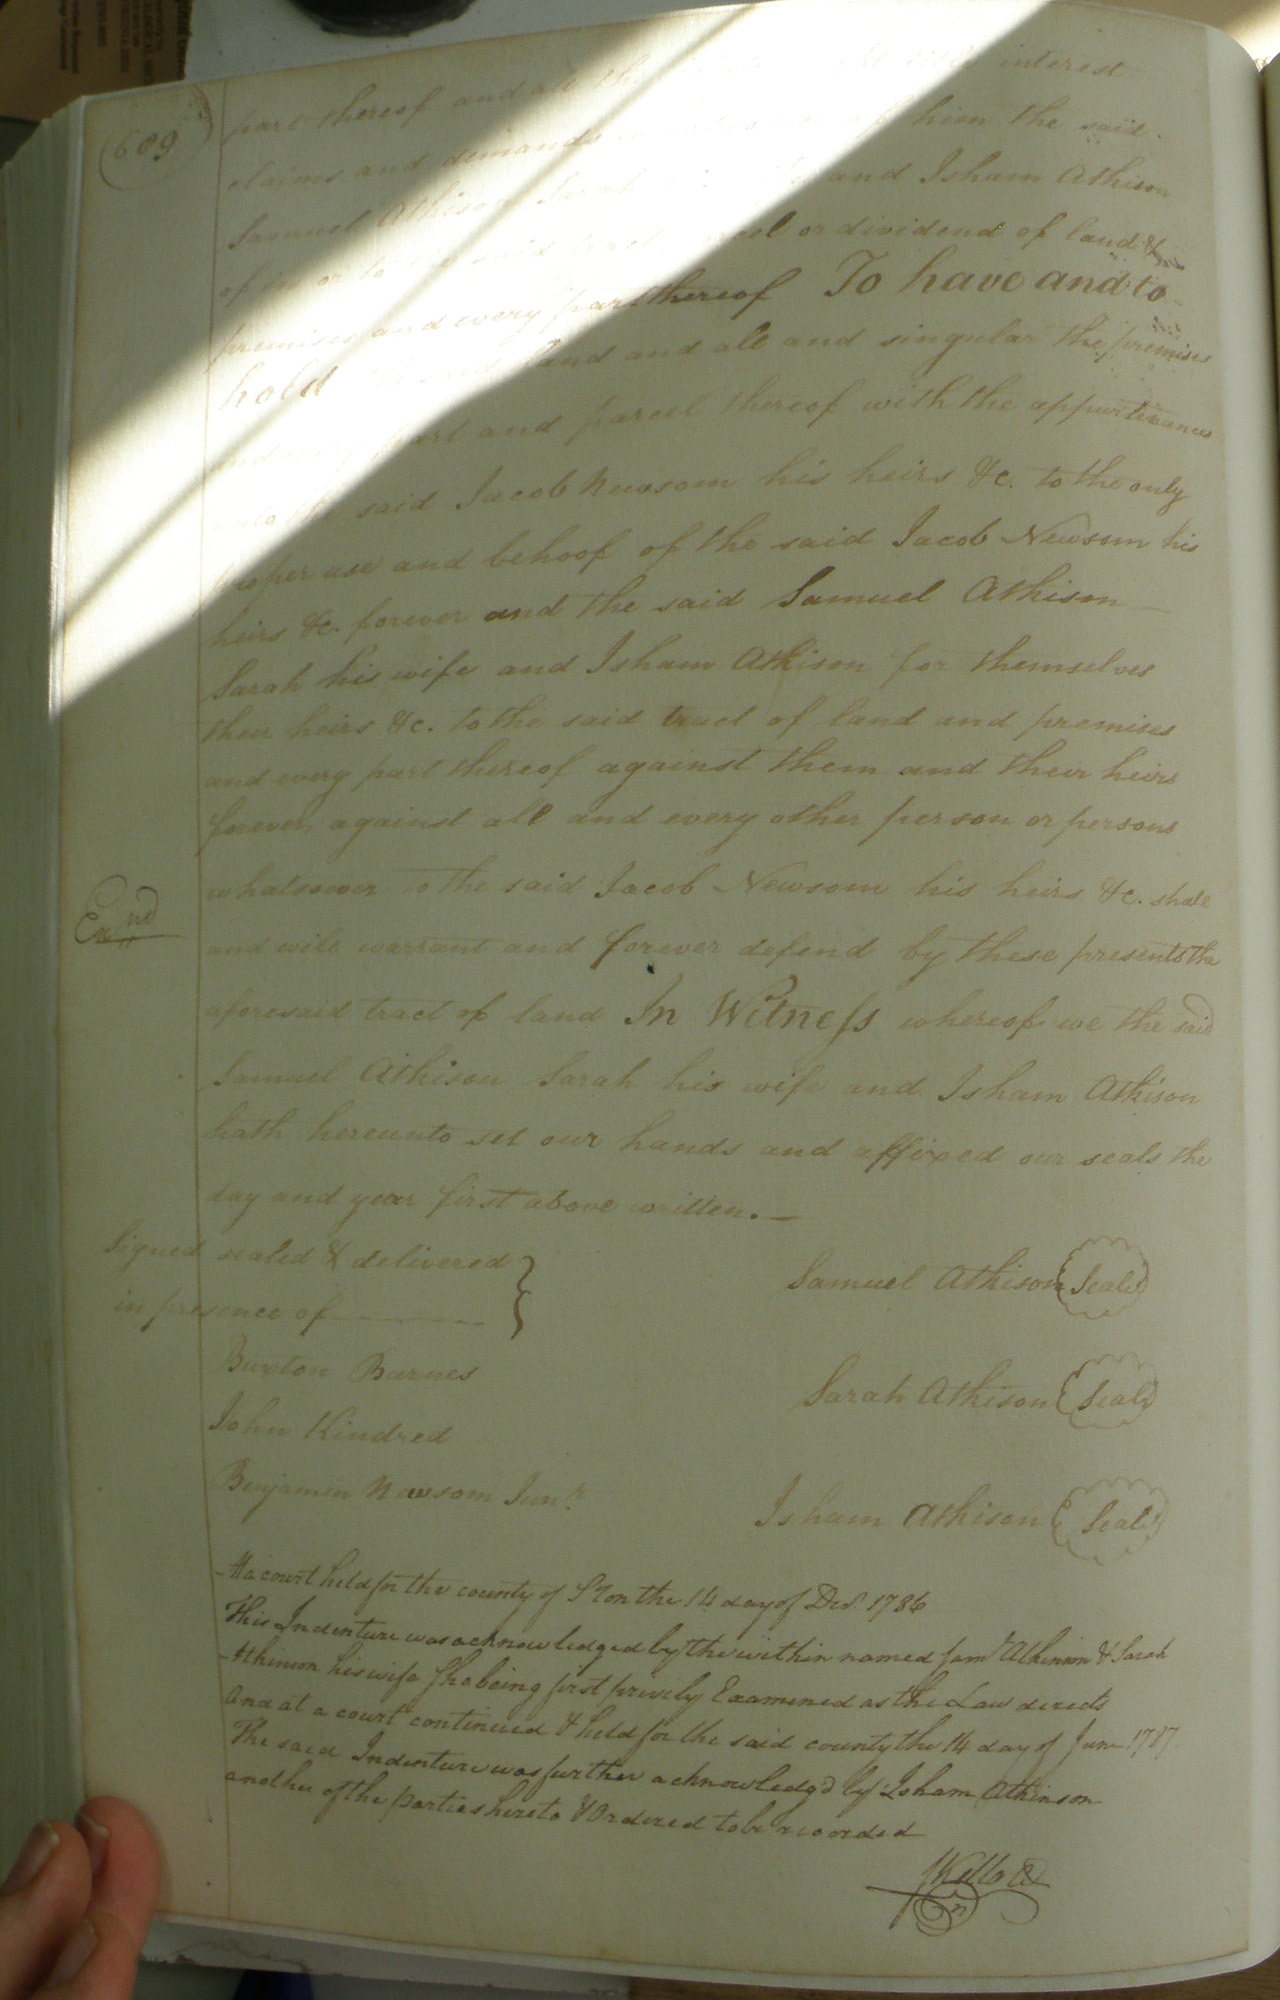 (689)
part thereof and all the interest
claims and demands him the said
Samuel Athison Sarah and Isham Athison
of in or to the said tract or dividend of land &
premises and every part thereof To have and to
hold land and all and singular the premises
and every part and parcel thereof with the appurtenances
unto the said Jacob Newsom his heirs &c. to the only
proper use and behoof of the said Jacob Newsom his
heirs &c. forever and the said Samuel Athison
Sarah his wife and Isham Athison for themselves
their heirs &c. to the said tract of land and premises
and every part thereof against them and their heirs
forever, against all and every other person or persons
whatsoever to the said Jacob Newsom his heirs &c. shall
Exnd
and will warrant and forever defend by these presents the
aforesaid tract of land In Witness whereof we the said
Samuel Athison Sarah his wife and Isham Athison
hath hereunto set our hands and affixed our seals the
day and year first above written.
Signed sealed & delivered
in presence of
Samuel Athison Seal
Buxton Barnes
Sarah Athison Seal
John Kindred
Benjamin Newsom Junr.
Isham Athison Seal
At a court held for the county of S.ton the 14 day of Decr. 1786
This Indenture was acknowledged by the within named Saml Athinson & Sarah
Athinson his wife she being first privily Examined as the Law directs
And at a court continued & held for the said county the 14 day of June 1787
The said Indenture was further acknowledg'd by Isham Athinson
another of the parties hereto & Ordered to be recorded